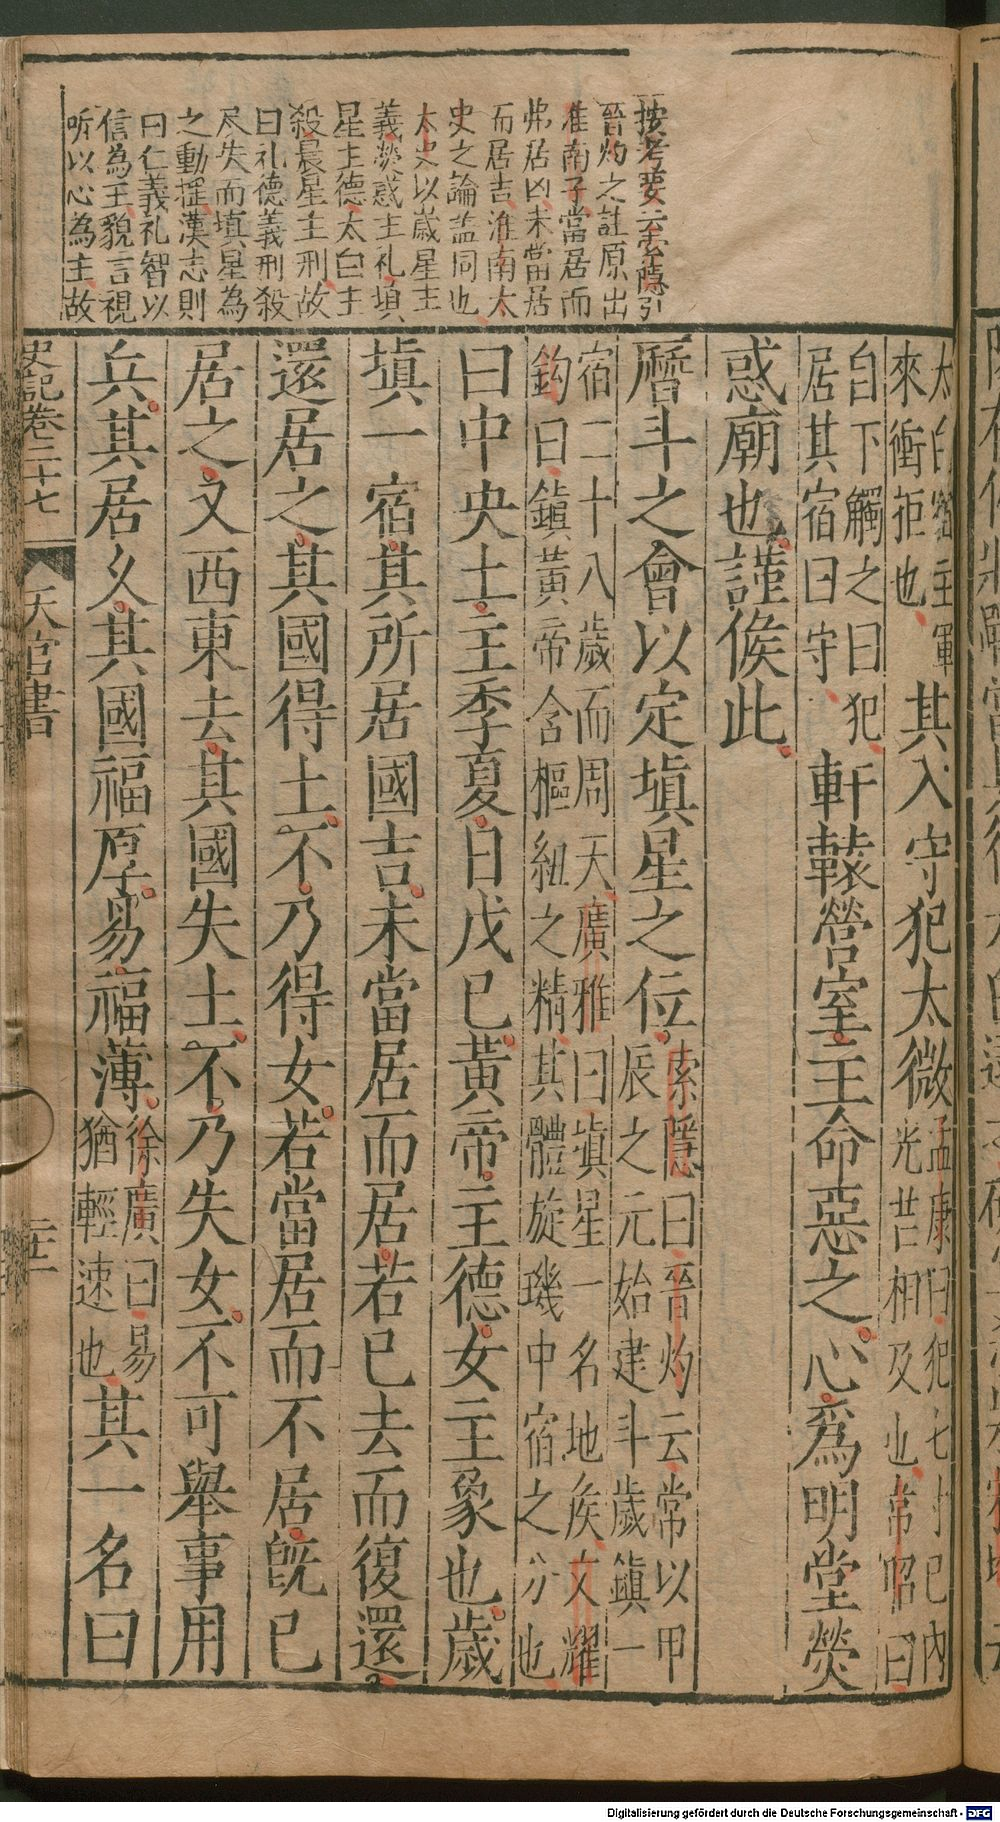 按考要云索隱引
晉灼之註原出
淮南子當居而
弗居凶未當居
而居吉淮南太
史之論盖同也
太史以歲星主
義熒惑主礼填
星主德太白主
殺晨星主刑故
曰礼德義刑殺
尽失而填星為
之動揺漢志則
曰仁義礼智以
信為主貌言視
听以心為主故
太白
主軍
來衝拒也
其入守犯太微
孟康曰犯七寸已內
光芒相及也韋昭曰
自下觸之曰犯
居其宿曰守
軒轅營室主命惡之心為明堂熒
惑廟也謹候此
曆斗之會以定塡星之位
索隱曰晉灼云常以甲
辰之元始建斗歲鎮一
宿二十八歲而周天廣雅曰塡星一名地侯文耀
鈎曰鎮黃帝含樞紐之精其體旋璣中宿之分也
曰中央土主季夏日戊己黃帝主德女主象也歲
塡一宿其所居國吉未當居而居若已去而復還
還居之其國得土不乃得女若當居而不居旣已
居之又西東去其國失土不乃失女不可舉事用
兵其居久其國福厚易福薄
徐廣曰易
猶輕速也
其一名曰
史記卷二十七
天官書
Digitalisierung gefördert durch die Deutsche Forschungsgemeinschaft - DFG